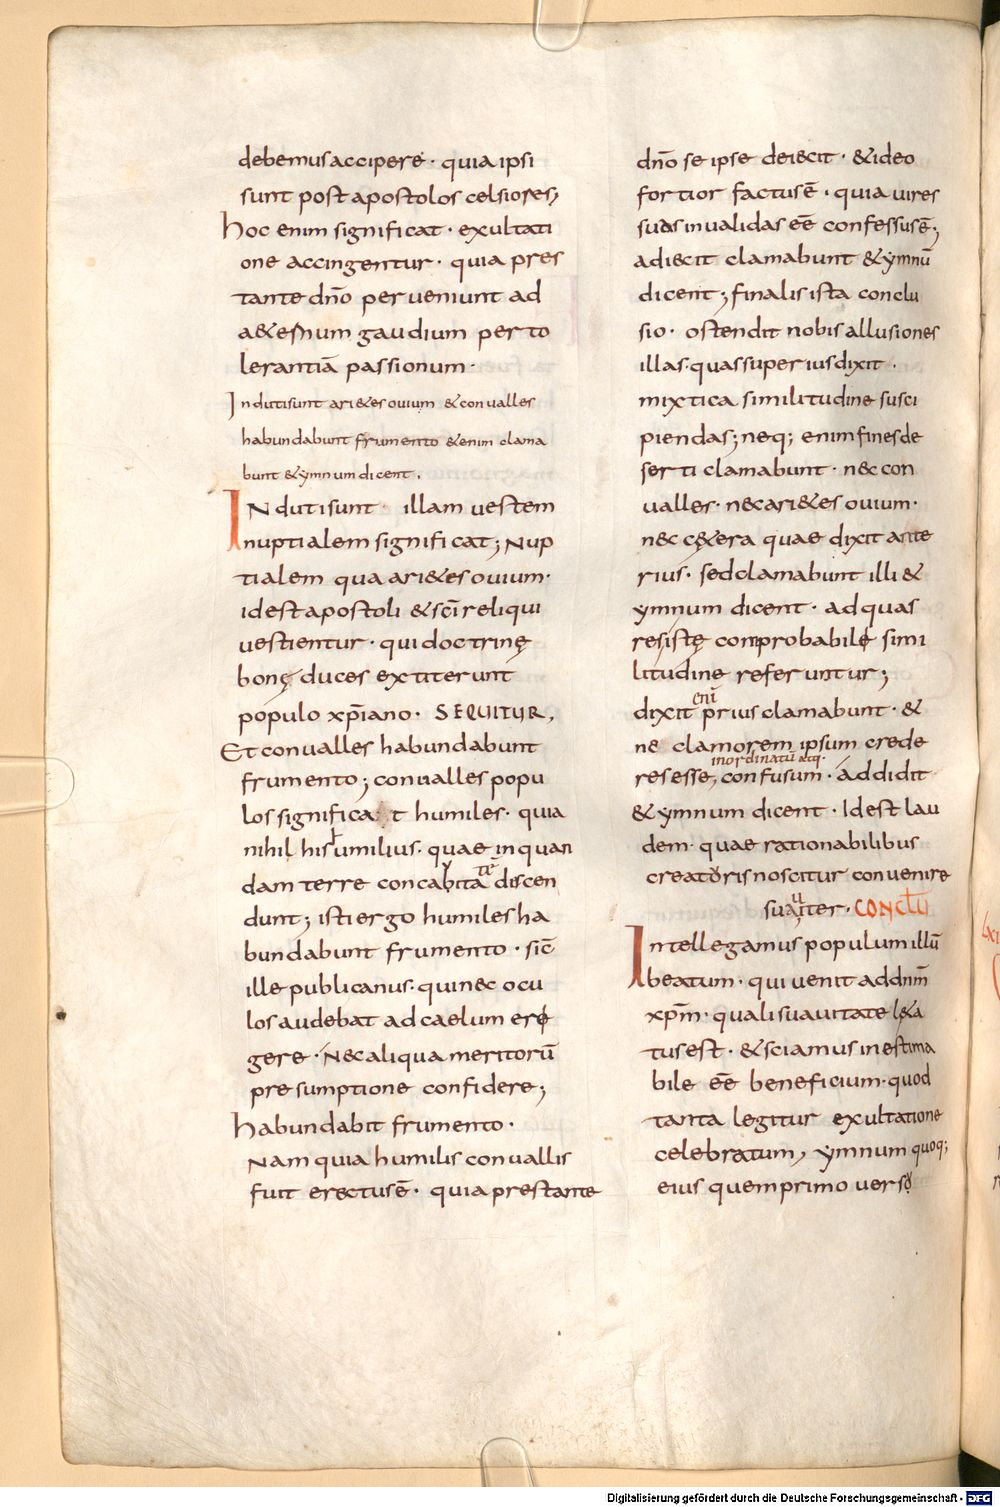 debemus accipere · quia ipsi
sunt post apostolos celsiores;
hoc enim significat · exultati
one accingentur · quia pres
tante dn̄o perveniunt ad
a&ernum gaudium per to
lerantiā passionum ·
Induti sunt ari&es ovium & convalles
habundabunt frumento &enim clama
bunt & ymnum dicent.
Induti sunt · illam vestem
nuptialem significat; Nup
tialem qua ari&es ovium·
id est apostoli & sc̄i reliqui
vestientur · qui doctrinę
bonę duces extiterunt
populo xp̄iano · SEQUITUR,
Et convalles habundabunt
frumento; convalles popu
los significat humiles · quia
nihil his umilius · quae in quan
dam terre concavitatē discen
dunt; isti ergo humiles ha
bundabunt frumento · sic̄
ille publicanus · qui nec ocu
los audebat ad caelum eri
gere · Nec aliqua meritorū
presumptione confidere;
habundabit frumento ·
Nam quia humilis convallis
fuit erectus ē · quia prestante
dn̄o se ipse deiecit · & ideo
fortior factus ē · quia vires
suas invalidas eē confessus ē;
adiecit clamabunt & ymnū
dicent; finalis ista conclu
sio · ostendit nobis allusiones
illas · quas superius dixit ·
mixtica similitudine susci
piendas; neq; enim fines de
serti clamabunt · nec con
valles · nec ari&es ovium ·
nec c&era quae dixit ante
rius · sed clamabunt illi &
ymnum dicent · ad quas
resistę comprobabili simi
litudinę referuntur;
enī
dixit prius clamabunt · &
ne clamorem ipsum crede
inordinatū atq·
res esse, confusum · addidit
& ymnum dicent · Id est lau
dem · quae rationabilibus
creatoris noscitur convenire
suaviter · CONCLU
Intellegamus populum illū
beatum · qui venit ad dn̄m
xp̄m · quali suavitate l&a
tus est · & sciamus inestima
bile eē beneficium · quod
tanta legitur exultatione
celebratum, ymnum quoq;
eius quem primo verso